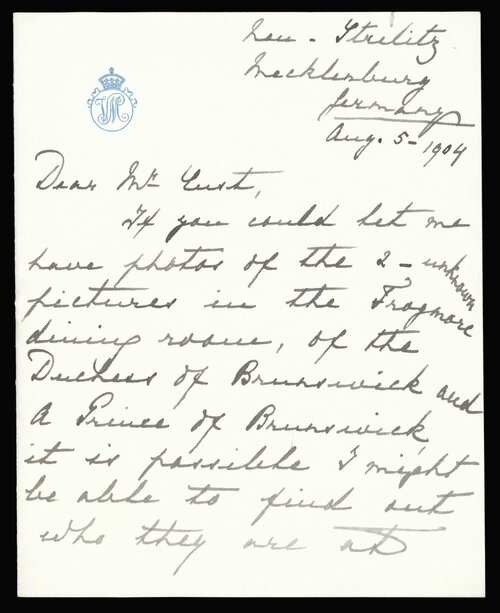 Neu - Strelitz
Mecklenburg
Germany
Aug. 5 - 1904
Dear Mr Cust,
If you could let me
have photos of the 2 - unknown
pictures in the Frogmore
dining room, of the
Duchess of Brunswick and
A Prince of Brunswick,
it is possible I might
be able to find out
who they are at